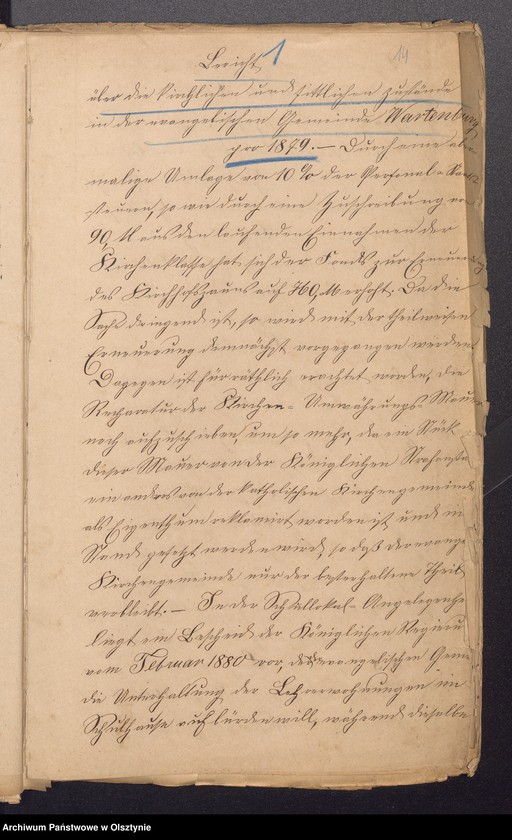 Bericht 1 14
über die kirchlichen und sittlichen Zustände
in der evangelischen Gemeinde Wartenburg
pro 1879. — Durch eine aber
malige Umlage von 10 % der Personal-
steuern, so wie durch eine Zuschreibung von
90 M aus den laufenden Einnahmen der
Kirchenkasse hat sich der Fonds zur Erneuerung
des Kirchhofszauns auf M erhöht. Da die
Sache dringend ist, so wird mit der theilweisen
Erneuerung demnächst vorgegangen werden.
Dagegen ist für räthlich erachtet worden, die
Reparatur der Kirchen-Umwährungs-Mauer
noch aufzuschieben, um so mehr, da ein Stück
dieser Mauer von der Königlichen
ein anderes von der katholischen Kirchengemeinde
als Eigenthum reklamirt worden ist und in
Stand gesetzt werden wird, so daß der evange
Kirchengemeinde nur der besterhaltene Theil
verbleibt. — In der Schullokal-Angelegenhe
liegt ein Bescheid der Königlichen Regieru
vom Februar 1880 vor, der evangelischen Geme
die Unterhaltung der Lehrerwohnungen im
Schulhause aufbürden will, während dieselbe
Archiwum Państwowe w Olsztynie